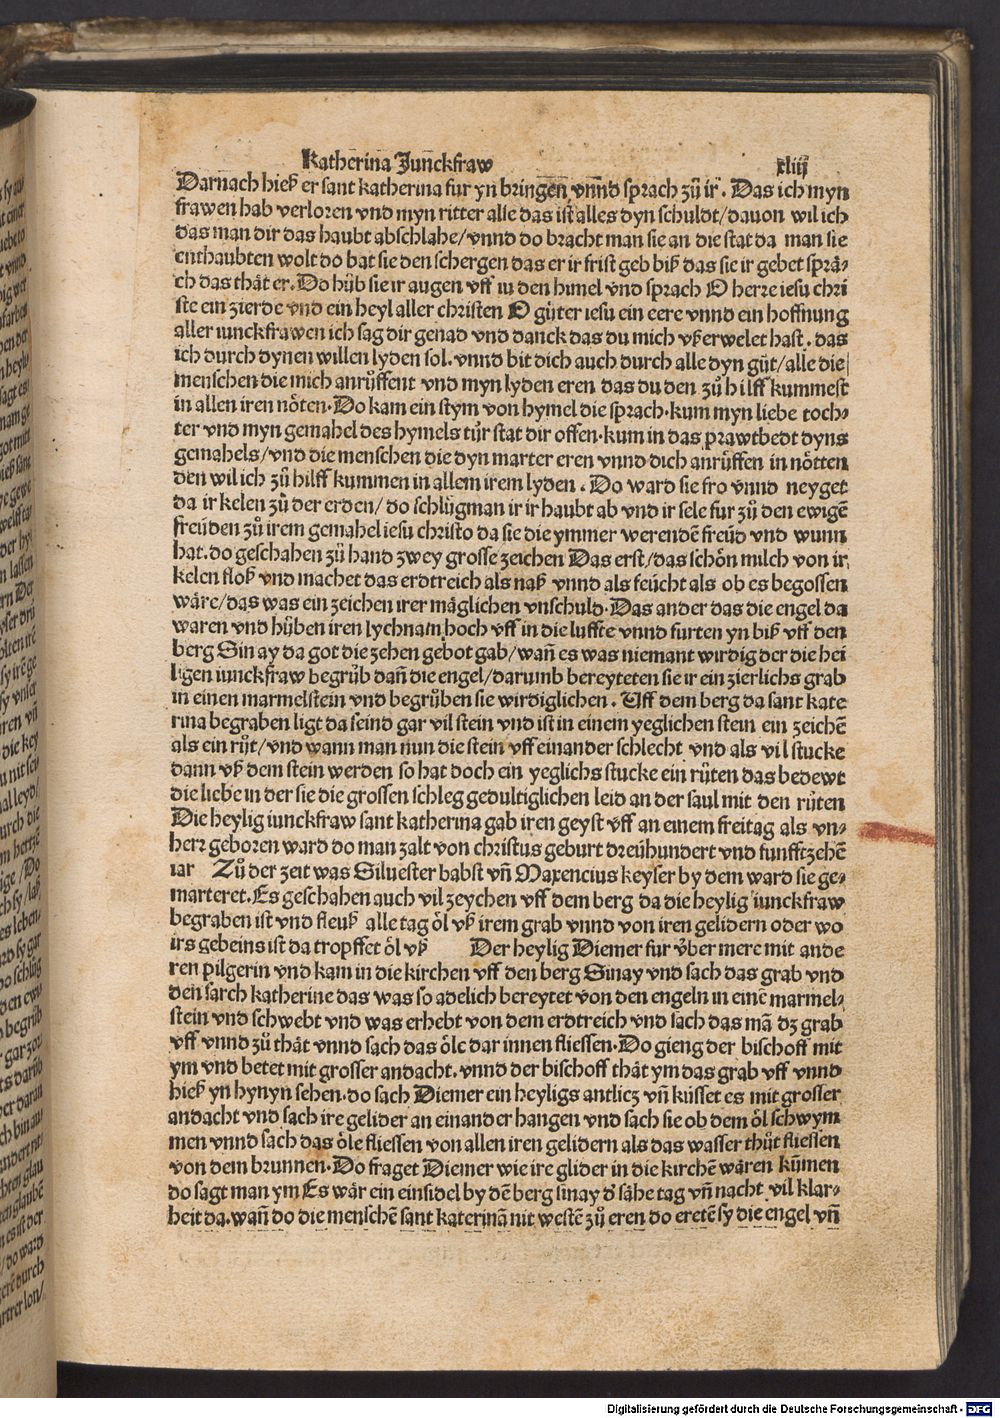 Katherina Junckfraw xliij
Darnach hieß er sant katherina fur yn bringen vnnd sprach zů ir. Das ich myn
frawen hab verloren vnd myn ritter alle das ist alles dyn schuldt/dauon wil ich
das man dir das haubt abschlahe/vnnd do bracht man sie an die stat da man sie
enthaubten wolt do bat sie den schergen das er ir frist geb biß das sie ir gebet sprä⸗
ch das thät er. Do hůb sie ir augen vff in den himel vnd sprach O herre iesu chri
ste ein zierde vnd ein heyl aller christen O gůter iesu ein eere vnnd ein hoffnung
aller iunckfrawen ich sag dir genad vnd danck das du mich vßerwelet hast. das
ich durch dynen willen lyden sol. vnnd bit dich auch durch alle dyn gůt/alle die
menschen die mich anrůffent vnd myn lyden eren das du den zů hilff kummest
in allen iren nöten. Do kam ein stym von hymel die sprach. kum myn liebe toch⸗
ter vnd myn gemahel des hymels tůr stat dir offen. kum in das prawtbedt dyns
gemahels/vnd die menschen die dyn marter eren vnnd dich anrůffen in nötten
den wil ich zů hilff kummen in allem irem lyden. Do ward sie fro vnnd neyget
da ir kelen zů der erden/do schlůg man ir ir haubt ab vnd ir sele fur zů den ewigē
freüden zů irem gemahel iesu christo da sie die ymmer werendē freüd vnd wunn
hat. do geschahen zů hand zwey grosse zeichen Das erst/das schön milch von ir
kelen floß vnd machet das erdtreich als naß vnnd als feücht als ob es begossen
wäre/das was ein zeichen irer mäglichen vnschuld. Das ander das die engel da
waren vnd hůben iren lychnam hoch vff in die luffte vnnd furten yn biß vff den
berg Sinay da got die zehen gebot gab/wañ es was niemant wirdig der die hei
ligen iunckfraw begrůb dañ die engel/darumb bereyteten sie ir ein zierlichs grab
in einen marmelstein vnd begrůben sie wirdiglichen. Uff dem berg da sant kate
rina begraben ligt da seind gar vil stein vnd ist in einem yeglichen stein ein zeichē
als ein růt/vnd wann man nun die stein vff einander schlecht vnd als vil stucke
dann vß dem stein werden so hat doch ein yeglichs stucke ein růten das bedewt
die liebe in der sie die grossen schleg gedultiglichen leid an der saul mit den růten
Die heylig iunckfraw sant katherina gab iren geyst vff an einem freitag als vn⸗
herr geboren ward do man zalt von christus geburt dreühundert vnd funfftzehē
iar Zů der zeit was Siluester babst vñ Maxencius keyser by dem ward sie ge⸗
marteret. Es geschahen auch vil zeychen vff dem berg da die heylig iunckfraw
begraben ist vnd fleuß alle tag öl vß irem grab vnnd von iren gelidern oder wo
irs gebeins ist da tropffet öl vß Der heylig Diemer fur über mere mit ande
ren pilgerin vnd kam in die kirchen vff den berg Sinay vnd sach das grab vnd
den sarch katherine das was so adelich bereytet von den engeln in einē marmel⸗
stein vnd schwebt vnd was erhebt von dem erdtreich vnd sach das mā dz grab
vff vnnd zů thät vnnd sach das öle dar innen fliessen. Do gieng der bischoff mit
ym vnd betet mit grosser andacht. vnnd der bischoff thät ym das grab vff vnnd
hieß yn hynyn sehen. do sach Diemer ein heyligs antlicz vñ küsset es mit grosser
andacht vnd sach ire gelider an einander hangen vnd sach sie ob dem öl schwym
men vnnd sach das öle fliessen von allen iren gelidern als das wasser thůt fliessen
von dem brunnen. Do fraget Diemer wie ire glider in die kirchē wären kūmen
do sagt man ym Es wär ein einsidel by dē berg sinay d' sähe tag vñ nacht vil klar⸗
heit da. wañ do die menschē sant katerinā nit westē zů eren do eretē sy die engel vñ
Digitalisierung gefördert durch die Deutsche Forschungsgemeinschaft - DFG